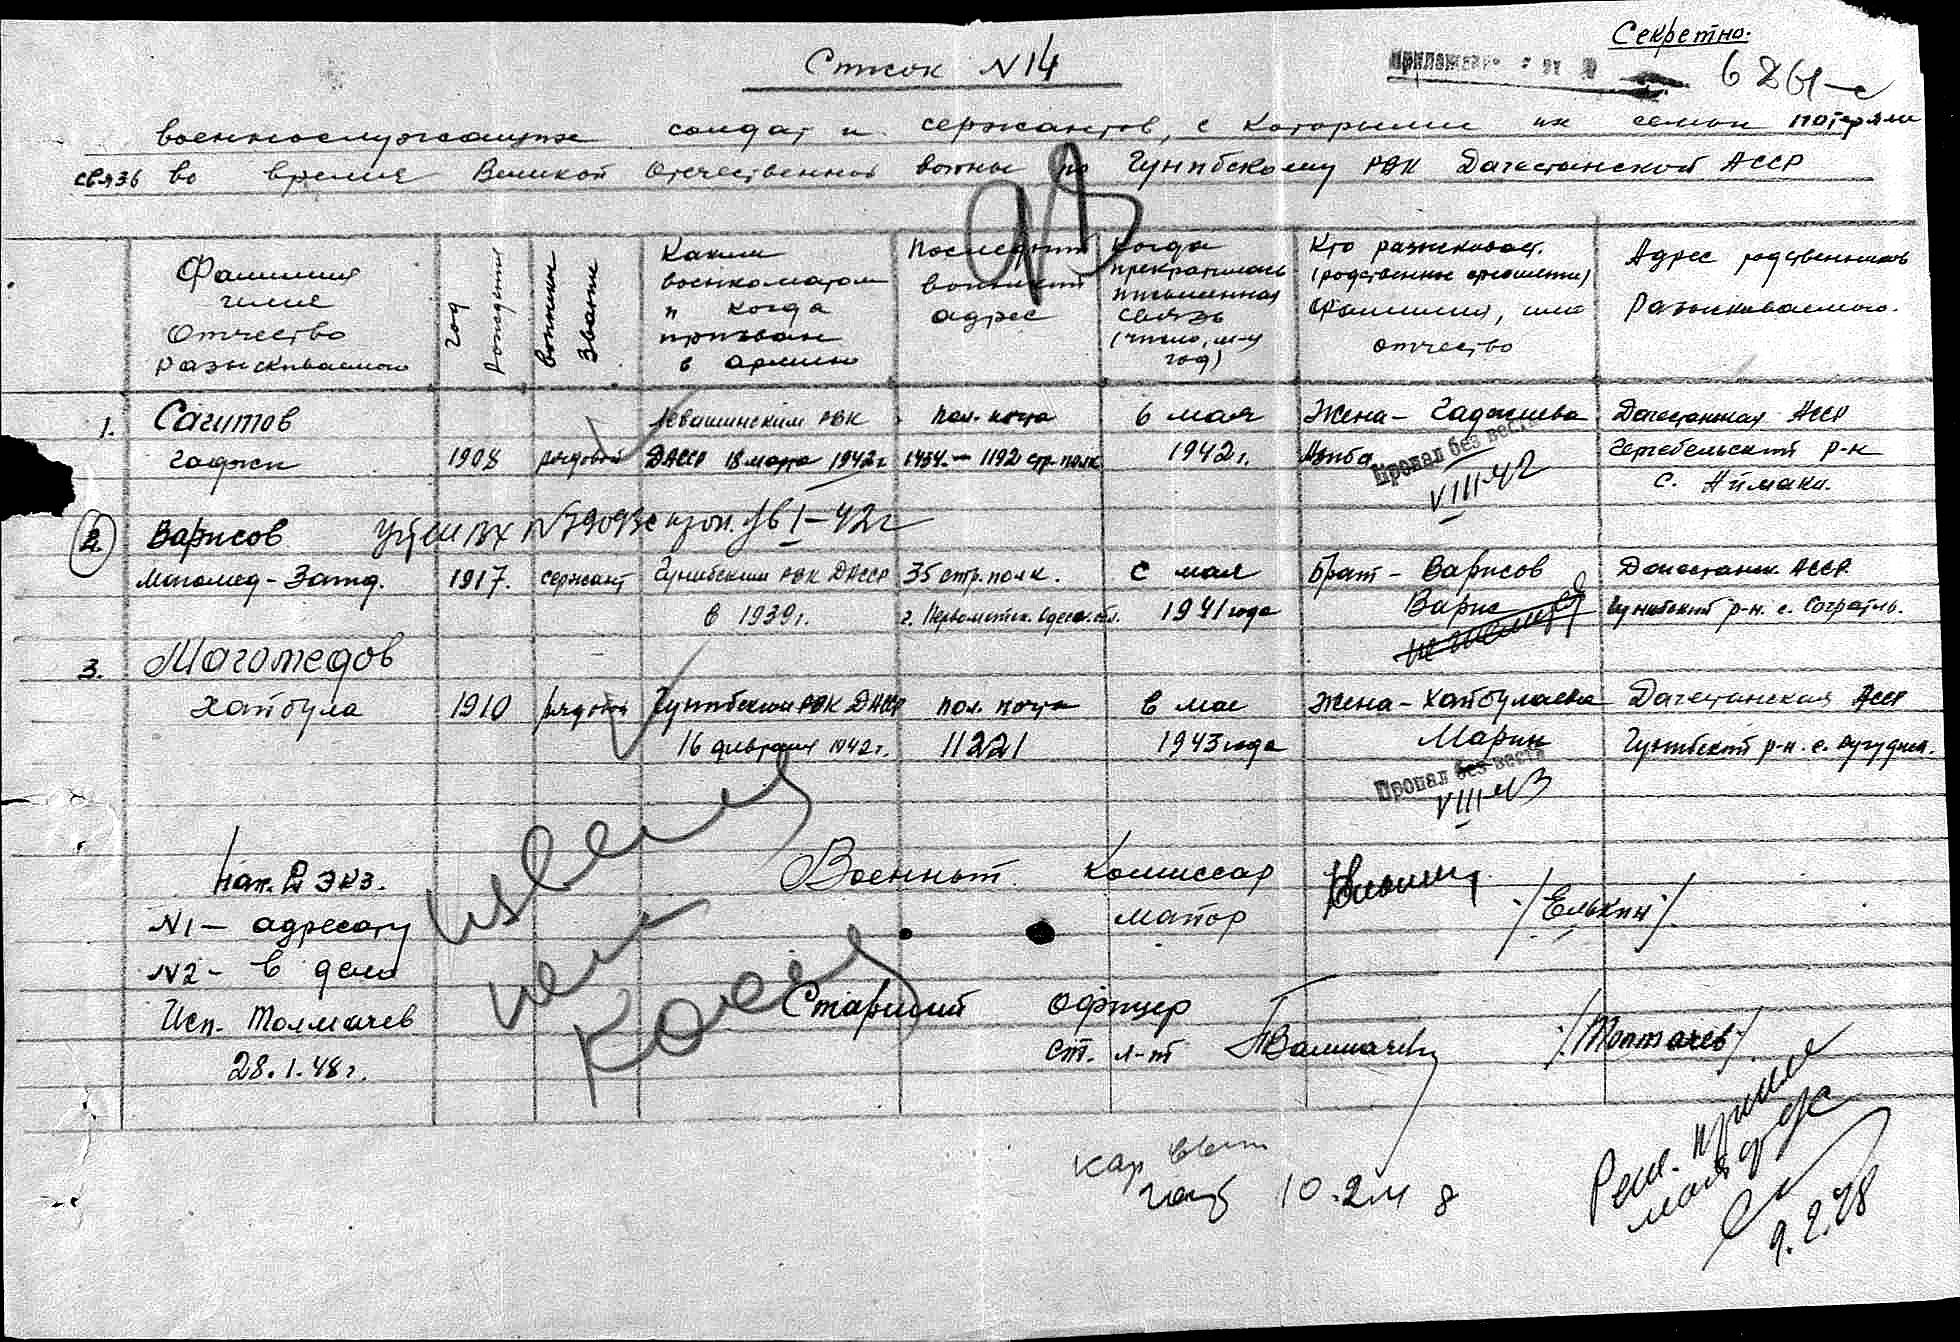 Секретно.
Список N14
Приложение
6861-с
военнослужащих солдат и сержантов, с которыми их семьи потеряли
связь во время Великой Отечественной войны по Гунибскому РВК Дагестанской АССР
Фамилия
имя
Отчество
разыскиваемого
год рождения
воинское звание
Каким
военкоматом
и когда
призван
в армию
Последний
воинский
адрес
Когда
прекратилась
письменная
связь
(число, м-ц
год)
Кто разыскивает.
(родственные отношения)
Фамилия, имя
отчество
Адрес родственников
Разыскиваемого.
1. Сагитов
Гаджи 1908 рядовой
Левашинским РВК
ДАССР 18 марта 1942г
пол. почта
1434. – 1192 стр. полк
6 мая
1942г.
Жена – Гаджиева
Пропал без вести
VIII-42
Дагестанская АССР
Гергебельский р-н
с. Аймаки.
2. Варисов
Магомед-Загид. 1917. сержант
Гунибским РВК ДАССР
в 1939г.
35 стр. полк.
г. Первомайск. Одесс. обл.
С мая
1941 года
Брат – Варисов
Варис
Дагестанск. АССР
Гунибский р-н. с. Согратль.
3. Магомедов
Хайбула 1910 рядовой
Гунибским РВК ДАССР
16 февраля 1942г.
пол. почта
11221
в мае
1943 года
Жена – Хайбулаева
Марин
Пропал без вести
VIII-43
Дагестанская АССР
Гунибский р-н. с.
Нап. 2 экз.
N1 – адресату
N2 – в дело
Исп. Толмачев
28.1.48г.
Военный Комиссар
майор
/Елькин/
Старший офицер
ст. л-т
/Толмачев/
10.2.48
9.2.48